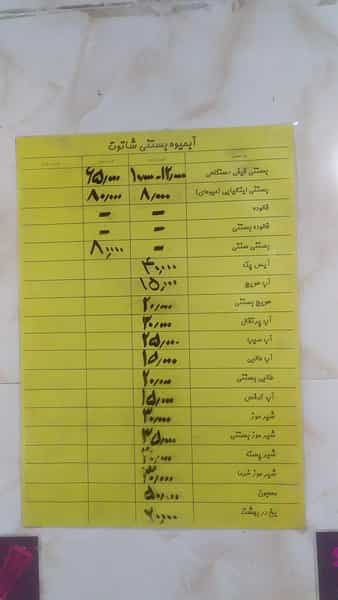 آبمیوه بستنی شاتوت
بستنی قیفی دستگاهی ۱۰،۰۰۰-۱۲،۰۰۰ ۶۵،۰۰۰
بستنی ایتالیایی (میوه‌ای) ۸،۰۰۰ ۸۰،۰۰۰
فالوده - -
فالوده بستنی - -
بستنی سنتی - ۸۰،۰۰۰
آیس پک ۴۰،۰۰۰
آب هویج ۱۵،۰۰۰
هویج بستنی ۲۰،۰۰۰
آب پرتقال ۳۰،۰۰۰
آب سیب ۲۵،۰۰۰
آب طالبی ۱۵،۰۰۰
طالبی بستنی ۲۰،۰۰۰
آب کرفس ۱۵،۰۰۰
شیر موز ۳۰،۰۰۰
شیر موز بستنی ۳۵،۰۰۰
شیر پسته
شیر موز خرما ۳۰،۰۰۰
معجون ۵۰،۰۰۰
یخ در بهشت ۲۰،۰۰۰